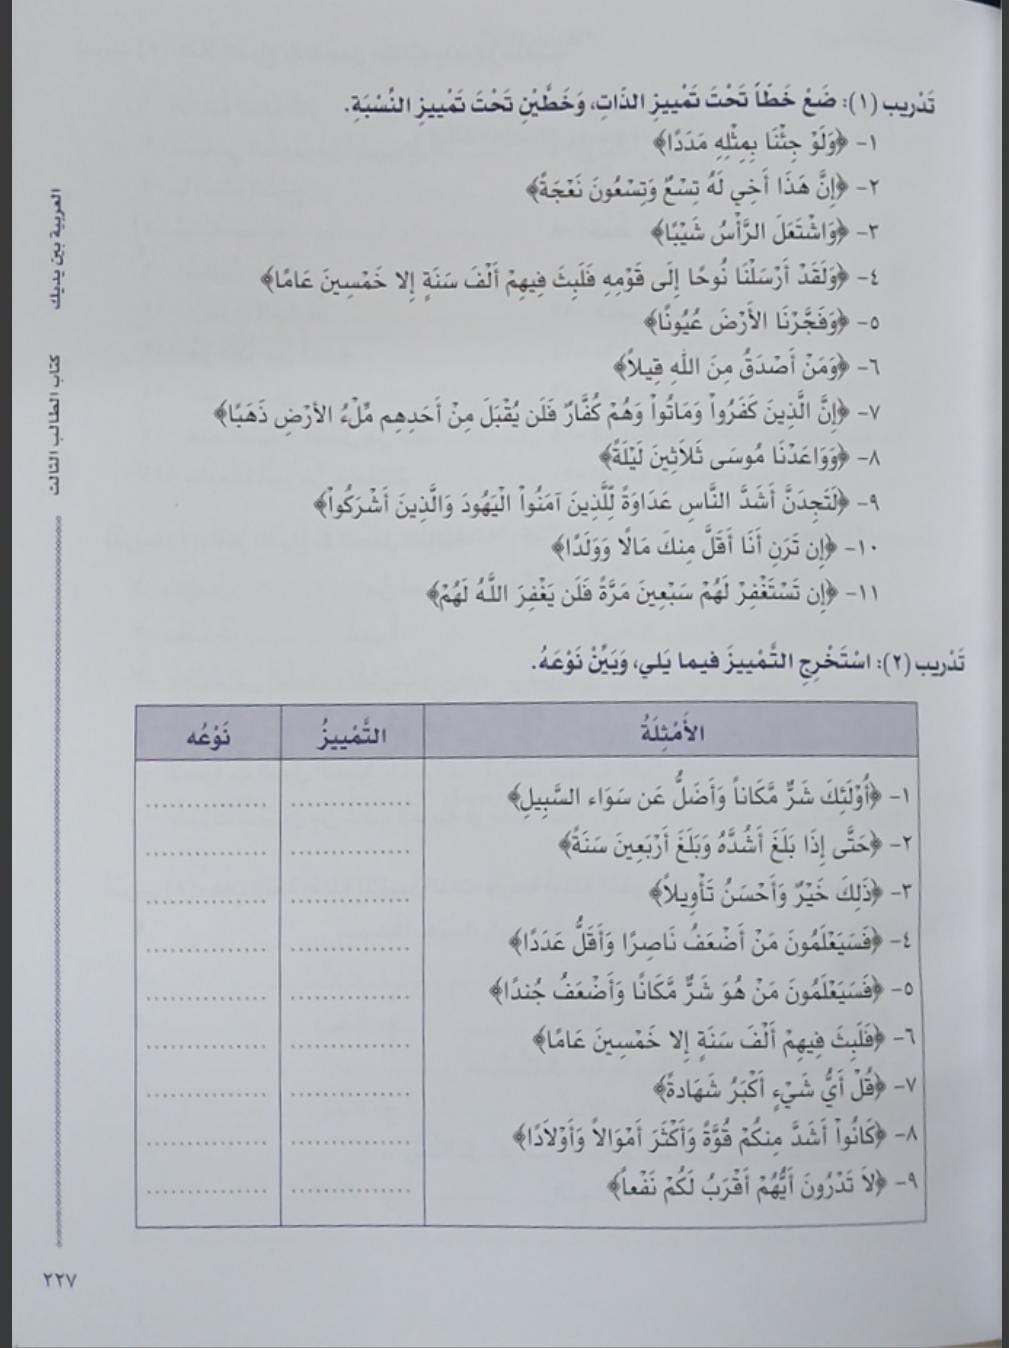 تَدْرِيب (١): ضَعْ خَطّاً تَحْتَ تَمْيِيزِ الذَاتِ، وَخَطَّيْنِ تَحْتَ تَمْيِيزِ النِّسْبَةِ.
١- ﴿وَلَوْ جِئْنَا بِمِثْلِهِ مَدَدًا﴾
٢- ﴿إِنَّ هَذَا أَخِي لَهُ تِسْعٌ وَتِسْعُونَ نَعْجَةً﴾
٣- ﴿وَاشْتَعَلَ الرَّأْسُ شَيْبًا﴾
٤- ﴿وَلَقَدْ أَرْسَلْنَا نُوحًا إِلَى قَوْمِهِ فَلَبِثَ فِيهِمْ أَلْفَ سَنَةٍ إِلا خَمْسِينَ عَامًا﴾
٥- ﴿وَفَجَّرْنَا الأَرْضَ عُيُونًا﴾
٦- ﴿وَمَنْ أَصْدَقُ مِنَ اللهِ قِيلاً﴾
٧- ﴿إِنَّ الَّذِينَ كَفَرُواْ وَمَاتُواْ وَهُمْ كُفَّارٌ فَلَن يُقْبَلَ مِنْ أَحَدِهِم مِّلْءُ الأرْضِ ذَهَبًا﴾
٨- ﴿وَوَاعَدْنَا مُوسَى ثَلاَثِينَ لَيْلَةً﴾
٩- ﴿لَتَجِدَنَّ أَشَدَّ النَّاسِ عَدَاوَةً لِّلَّذِينَ آمَنُواْ الْيَهُودَ وَالَّذِينَ أَشْرَكُواْ﴾
١٠- ﴿إِن تَرَنِ أَنَا أَقَلَّ مِنكَ مَالًا وَوَلَدًا﴾
١١- ﴿إِن تَسْتَغْفِرْ لَهُمْ سَبْعِينَ مَرَّةً فَلَن يَغْفِرَ اللَّهُ لَهُمْ﴾
تَدْرِيب (٢): اسْتَخْرِجِ التَّمْيِيزَ فيما يَلي، وَبَيِّنْ نَوْعَهُ.
الأَمْثِلَةُ التَّمْيِيزُ نَوْعُه
١- ﴿أُوْلَئِكَ شَرٌّ مَّكَاناً وَأَضَلُّ عَن سَوَاء السَّبِيلِ﴾ .............. ..............
٢- ﴿حَتَّى إِذَا بَلَغَ أَشُدَّهُ وَبَلَغَ أَرْبَعِينَ سَنَةً﴾ .............. ..............
٣- ﴿ذَلِكَ خَيْرٌ وَأَحْسَنُ تَأْوِيلاً﴾ .............. ..............
٤- ﴿فَسَيَعْلَمُونَ مَنْ أَضْعَفُ نَاصِرًا وَأَقَلُّ عَدَدًا﴾ .............. ..............
٥- ﴿فَسَيَعْلَمُونَ مَنْ هُوَ شَرٌّ مَّكَانًا وَأَضْعَفُ جُندًا﴾ .............. ..............
٦- ﴿فَلَبِثَ فِيهِمْ أَلْفَ سَنَةٍ إِلا خَمْسِينَ عَامًا﴾ .............. ..............
٧- ﴿قُلْ أَيُّ شَيْءٍ أَكْبَرُ شَهَادةً﴾ .............. ..............
٨- ﴿كَانُواْ أَشَدَّ مِنكُمْ قُوَّةً وَأَكْثَرَ أَمْوَالاً وَأَوْلاَدًا﴾ .............. ..............
٩- ﴿لاَ تَدْرُونَ أَيُّهُمْ أَقْرَبُ لَكُمْ نَفْعاً﴾ .............. ..............
العربية بين يديك كتاب الطالب الثالث
٢٢٧